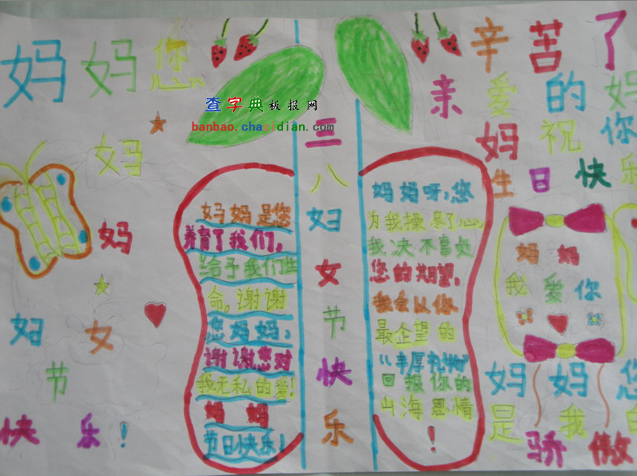 妈妈您辛苦了
亲爱的妈
妈祝你
生日快乐
查字典板报网
banbao.chazidian.com
妈
妈
妇女
节
快乐!
三八妇女节快乐
妈妈是您
养育了我们,
给予我们生
命,谢谢
您妈妈,
谢谢您对
我无私的爱!
妈妈
节日快乐!
妈妈呀,您
为我操尽了心,
我决不辜负
您的期望,
我会以你
最企望的
“丰厚礼物”
回报你的
山海恩情
!
妈妈
我爱你
妈妈您
是我的
骄傲